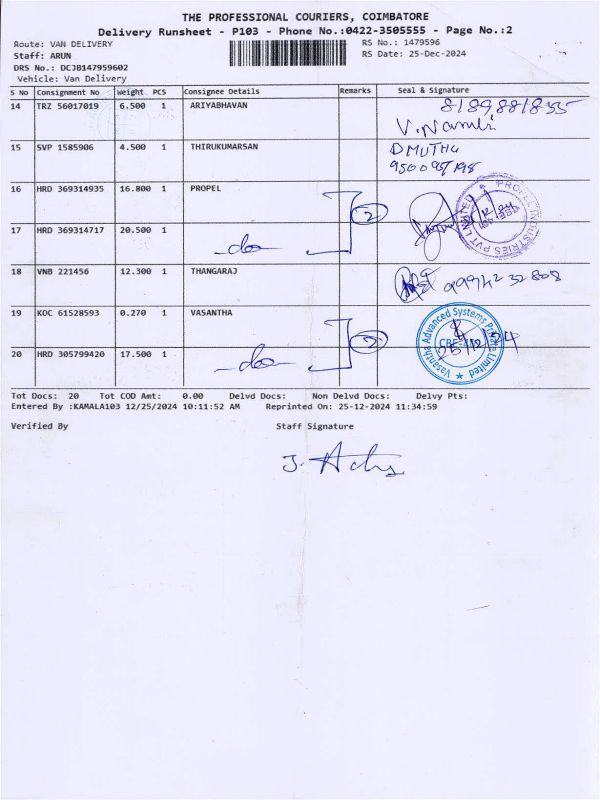 THE PROFESSIONAL COURIERS, COIMBATORE
Delivery Runsheet - P103 - Phone No.:0422-3505555 - Page No.:2
Route: VAN DELIVERY RS No.: 1479596
Staff: ARUN RS Date: 25-Dec-2024
DRS No.: DCJB147959602
Vehicle: Van Delivery
S No Consignment No Weight PCS Consignee Details Remarks Seal & Signature
14 TRZ 56017019 6.500 1 ARIYABHAVAN 8189881835
V.
15 SVP 1585906 4.500 1 THIRUKUMARSAN D MUTHU
16 HRD 369314935 16.800 1 PROPEL 2
PROPEL INDUSTRIES PVT LIMITED
17 HRD 369314717 20.500 1 do
18 VNB 221456 12.300 1 THANGARAJ 99942 32808
19 KOC 61528593 0.270 1 VASANTHA
Vasantha Advanced Systems Private Limited
25/12/24
20 HRD 305799420 17.500 1 do
Tot Docs: 20 Tot COD Amt: 0.00 Delvd Docs: Non Delvd Docs: Delvy Pts:
Entered By :KAMALA103 12/25/2024 10:11:52 AM Reprinted On: 25-12-2024 11:34:59
Verified By Staff Signature